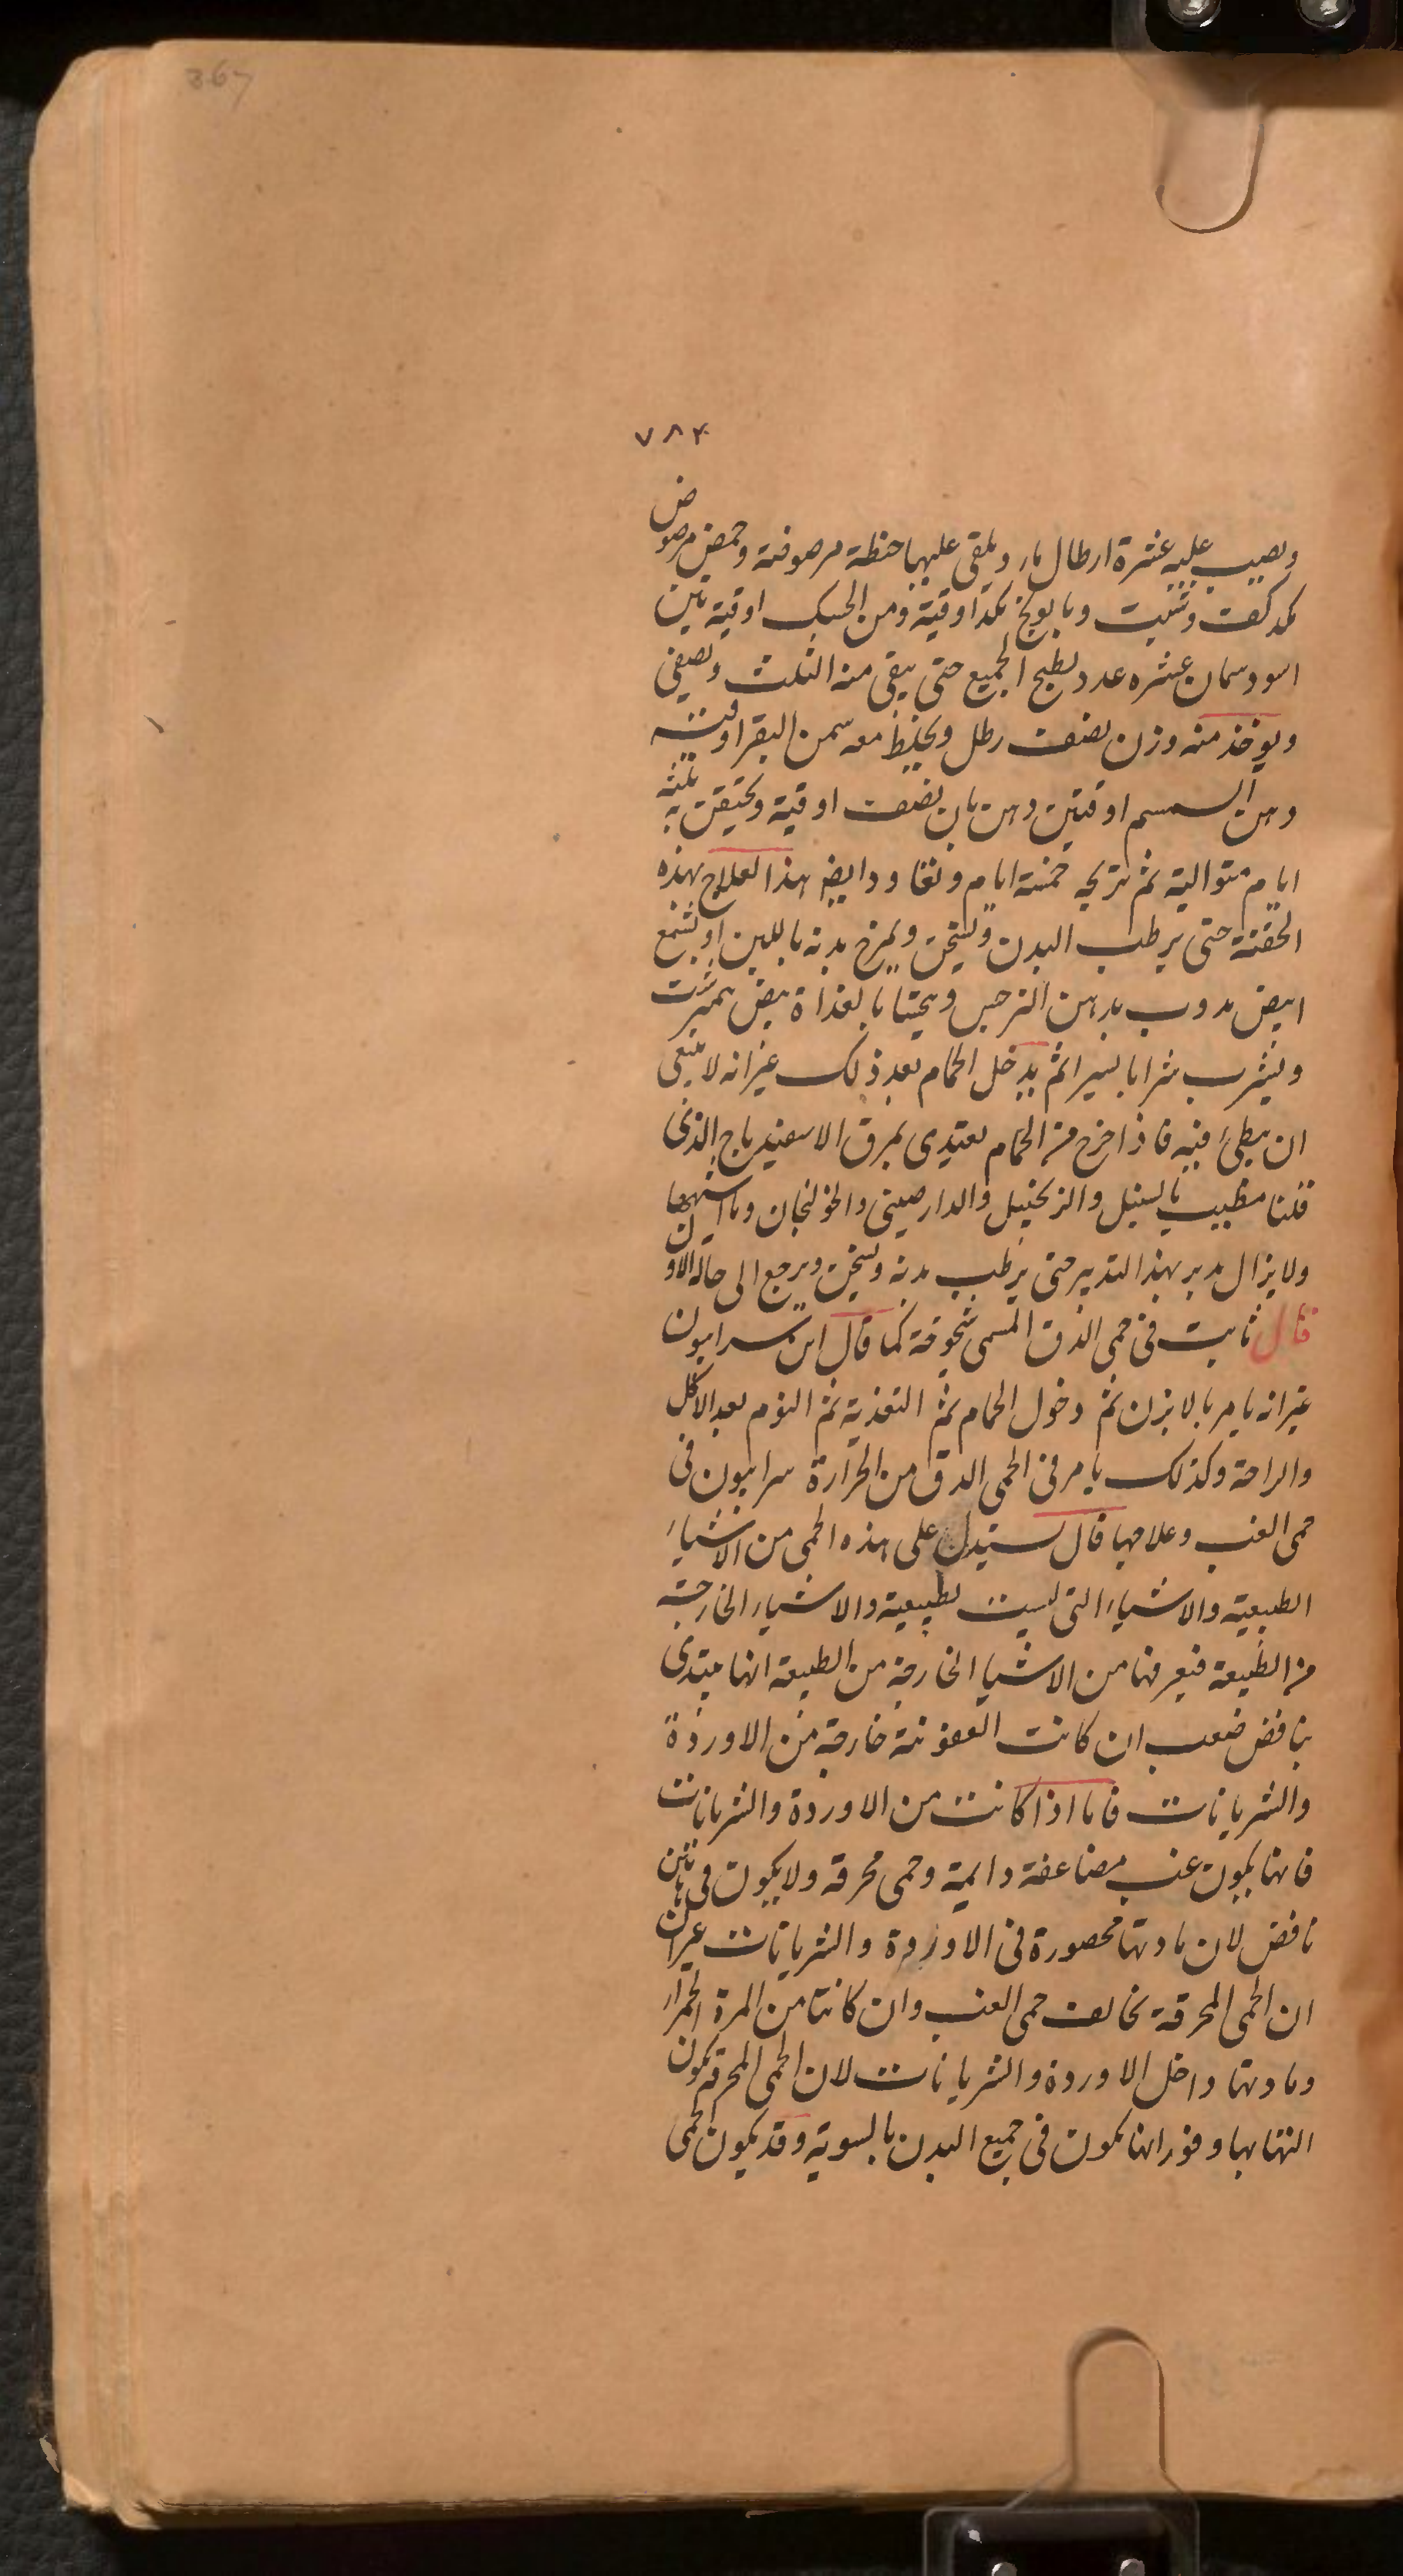 367
٧٨٤
ويصب عليه عشرة ارطال ماء ويلقى عليها حنطة مرضوضة وحمص مرضوض
كمد كف وشبت وبابونج كمد اوقية ومن الحسك اوقية تين
اسود سمان عشره عدد يطبخ الجميع حتى يبقى منه الثلث ويصفى
ويوخذ منه وزن نصف رطل ويخلط معه سمن البقر اوقية
دهن السمسم اوقيتين دهن بان نصف اوقية ويحتقن به ثلثة
ايام متوالية ثم تريحه خمسة ايام وتعاود ايضا هذا العلاج بهذه
الحقنة حتى يرطب البدن ويسخن ويمرخ بدنه باللبن او بشمع
ابيض مدوب بدهن النرجس ويحتسا بالغداة بيض نمبرشت
ويشرب شرابا يسيرا ثم يدخل الحمام بعد ذلك غير انه لا ينبغى
ان يبطئ فيه فاذا خرج من الحمام يعتدى بمرق الاسفيدباج الذى
قلنا مطيب بالسنبل والزنجبيل والدارصينى والخولنجان وما اشبهها
ولا يزال مدبر بهذا التدبير حتى يرطب بدنه ويسخن ويرجع الى حاله الاول
قال ثابت فى حمى الدق المسمى شيخوخة كما قال ابن سرابيون
غير انه يامر بالابزن ثم دخول الحمام ثم التغذية ثم النوم بعد الاكل
والراحة وكذلك يامر فى الحمى الدق من الحرارة سرابيون فى
حمى الغب وعلامها قال يستدل على هذه الحمى من الاشياء
الطبيعية والاشياء التى ليست لطبيعية والاشياء الخارجة
من الطبيعة فيعرفها من الاشيا الخارجة من الطبيعة انها يبتدى
بنافض صعب ان كانت العفونة خارجة من الاوردة
والشريانات فاما اذا كانت من الاوردة والشريانات
فانها يكون غب مضاعفة دايمة وحمى محرقة ولا يكون فى هاتين
نافض لان مادتها محصورة فى الاوردة والشريانات غير ان
ان الحمى المحرقة تخالف حمى الغب وان كانتا من المرة الحمراء
ومادتها داخل الاوردة والشريانات لان الحمى المحرقة يكون
التهابها وفورانها يكون فى جميع البدن بالسوية وقد يكون الحمى